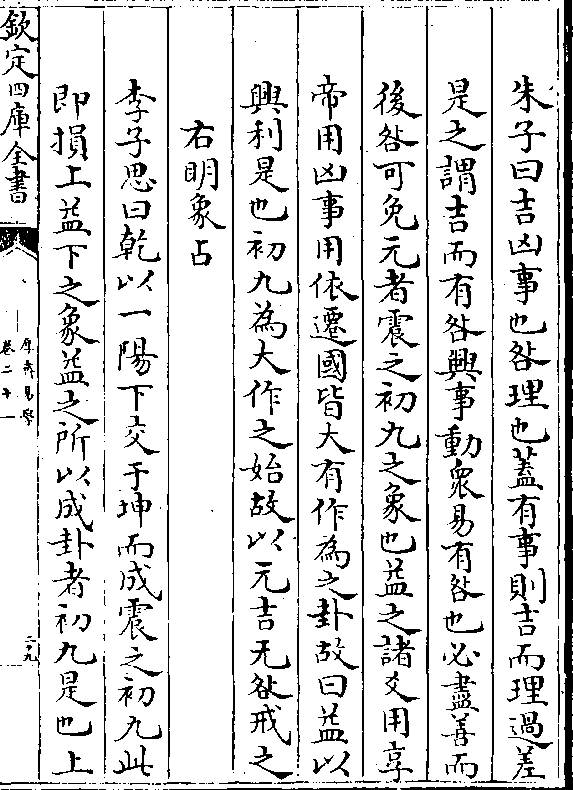 朱子曰吉凶事也咎理也蓋有事則吉而理過差
是之謂吉而有咎興事動衆易有咎也必盡善而
後咎可免元者震之初九之象也益之諸爻用享
帝用凶事用依遷國皆大有作為之卦故曰益以
興利是也初九為大作之始故以元吉无咎戒之
右明象占
李子思曰乾以一陽下交于坤而成震之初九此
即損上益下之象益之所以成卦者初九是也上
欽定四庫全書
厚齋易學
卷二十一
二九